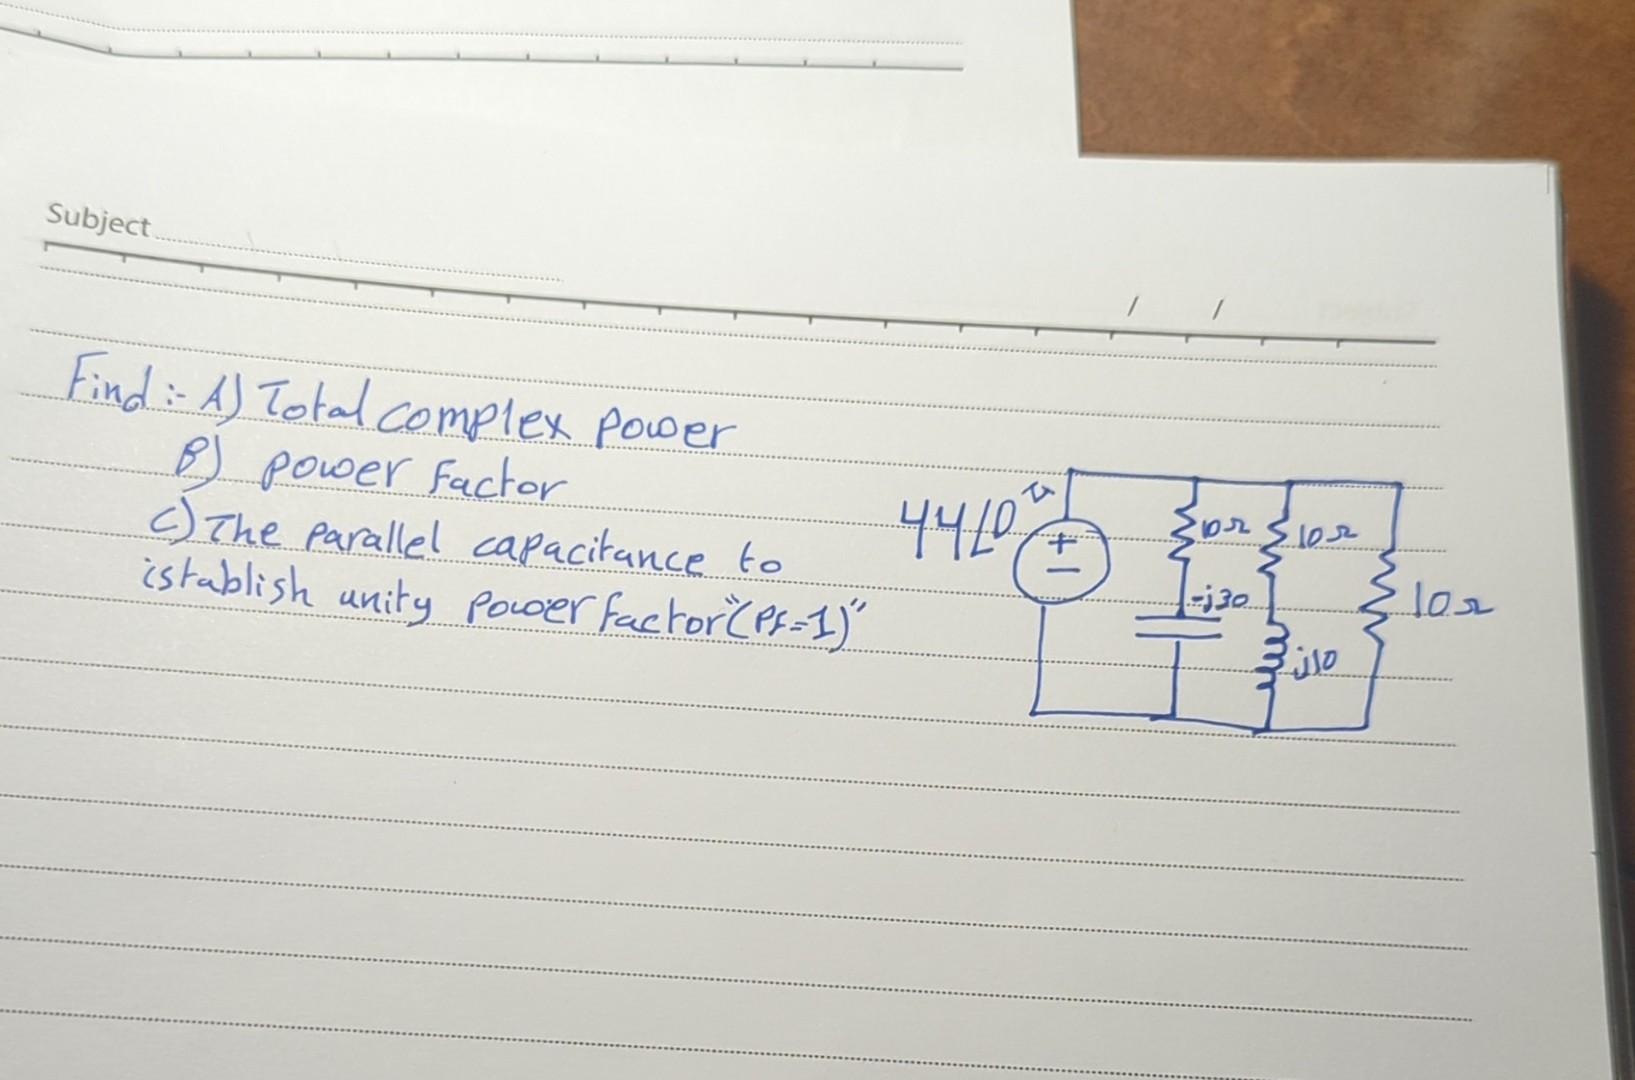 Subject
/ /
Find :- A) Total complex power
B) power Factor
C) The parallel capacitance to
istablish unity power factor "(PF=1)"
44∠0 v
+
−
10Ω
-j30
10Ω
j10
10Ω